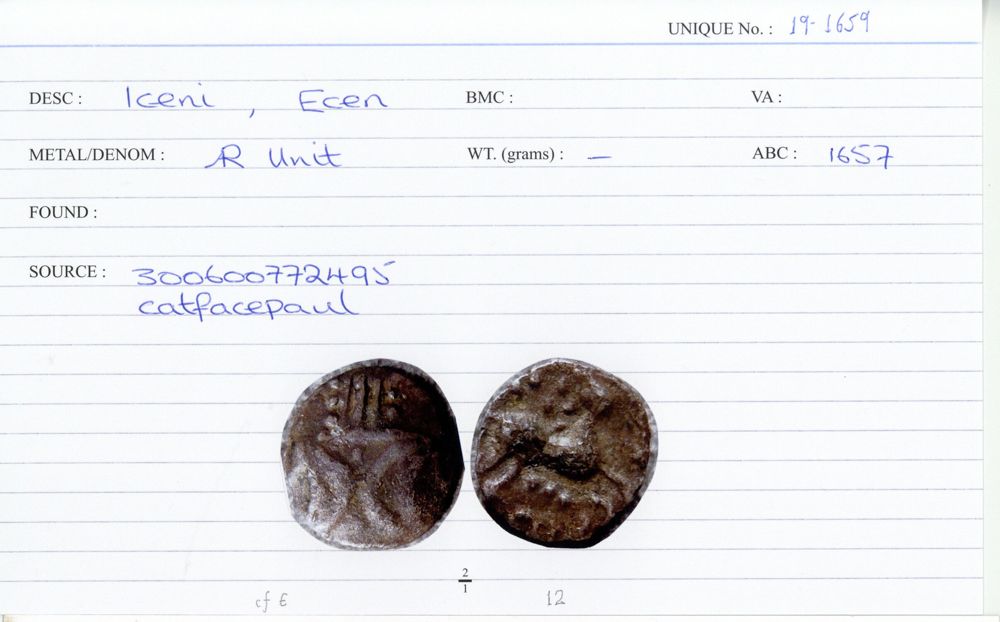 UNIQUE No. : 19-1659
DESC : Iceni, Ecen BMC : VA :
METAL/DENOM : AR Unit WT. (grams) : — ABC : 1657
FOUND :
SOURCE : 300600772495
catfacepaul
2/1
cf E 12